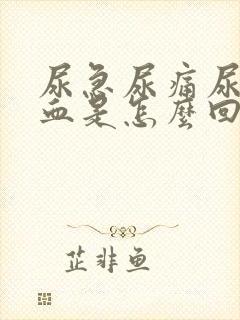 尿急尿痛尿
血是怎麼回
芷非鱼